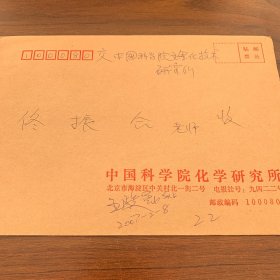 交 中国科学院
研究所
贴邮
票处
佟振合 老师 收
中国科学院化学研究所
北京市海淀区中关村北一街二号 电报挂号：九四二二
邮政编码 100080
2007-2-8
22